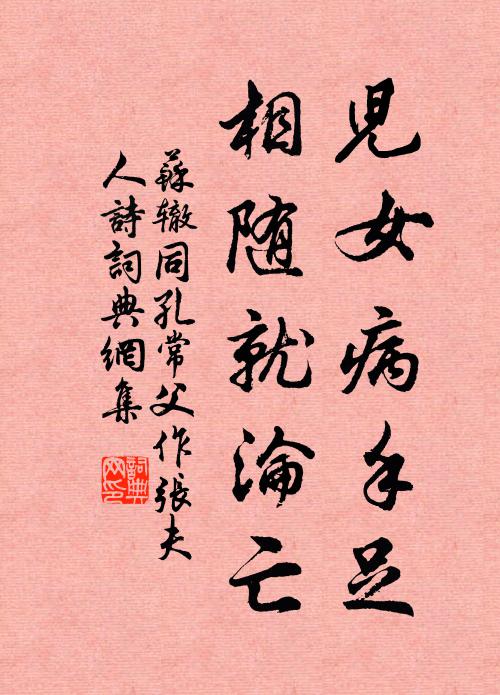 兒女病手足
相随就淪亡
蘇辙同孔常父作張夫
人詩詞典網集
詞典网印